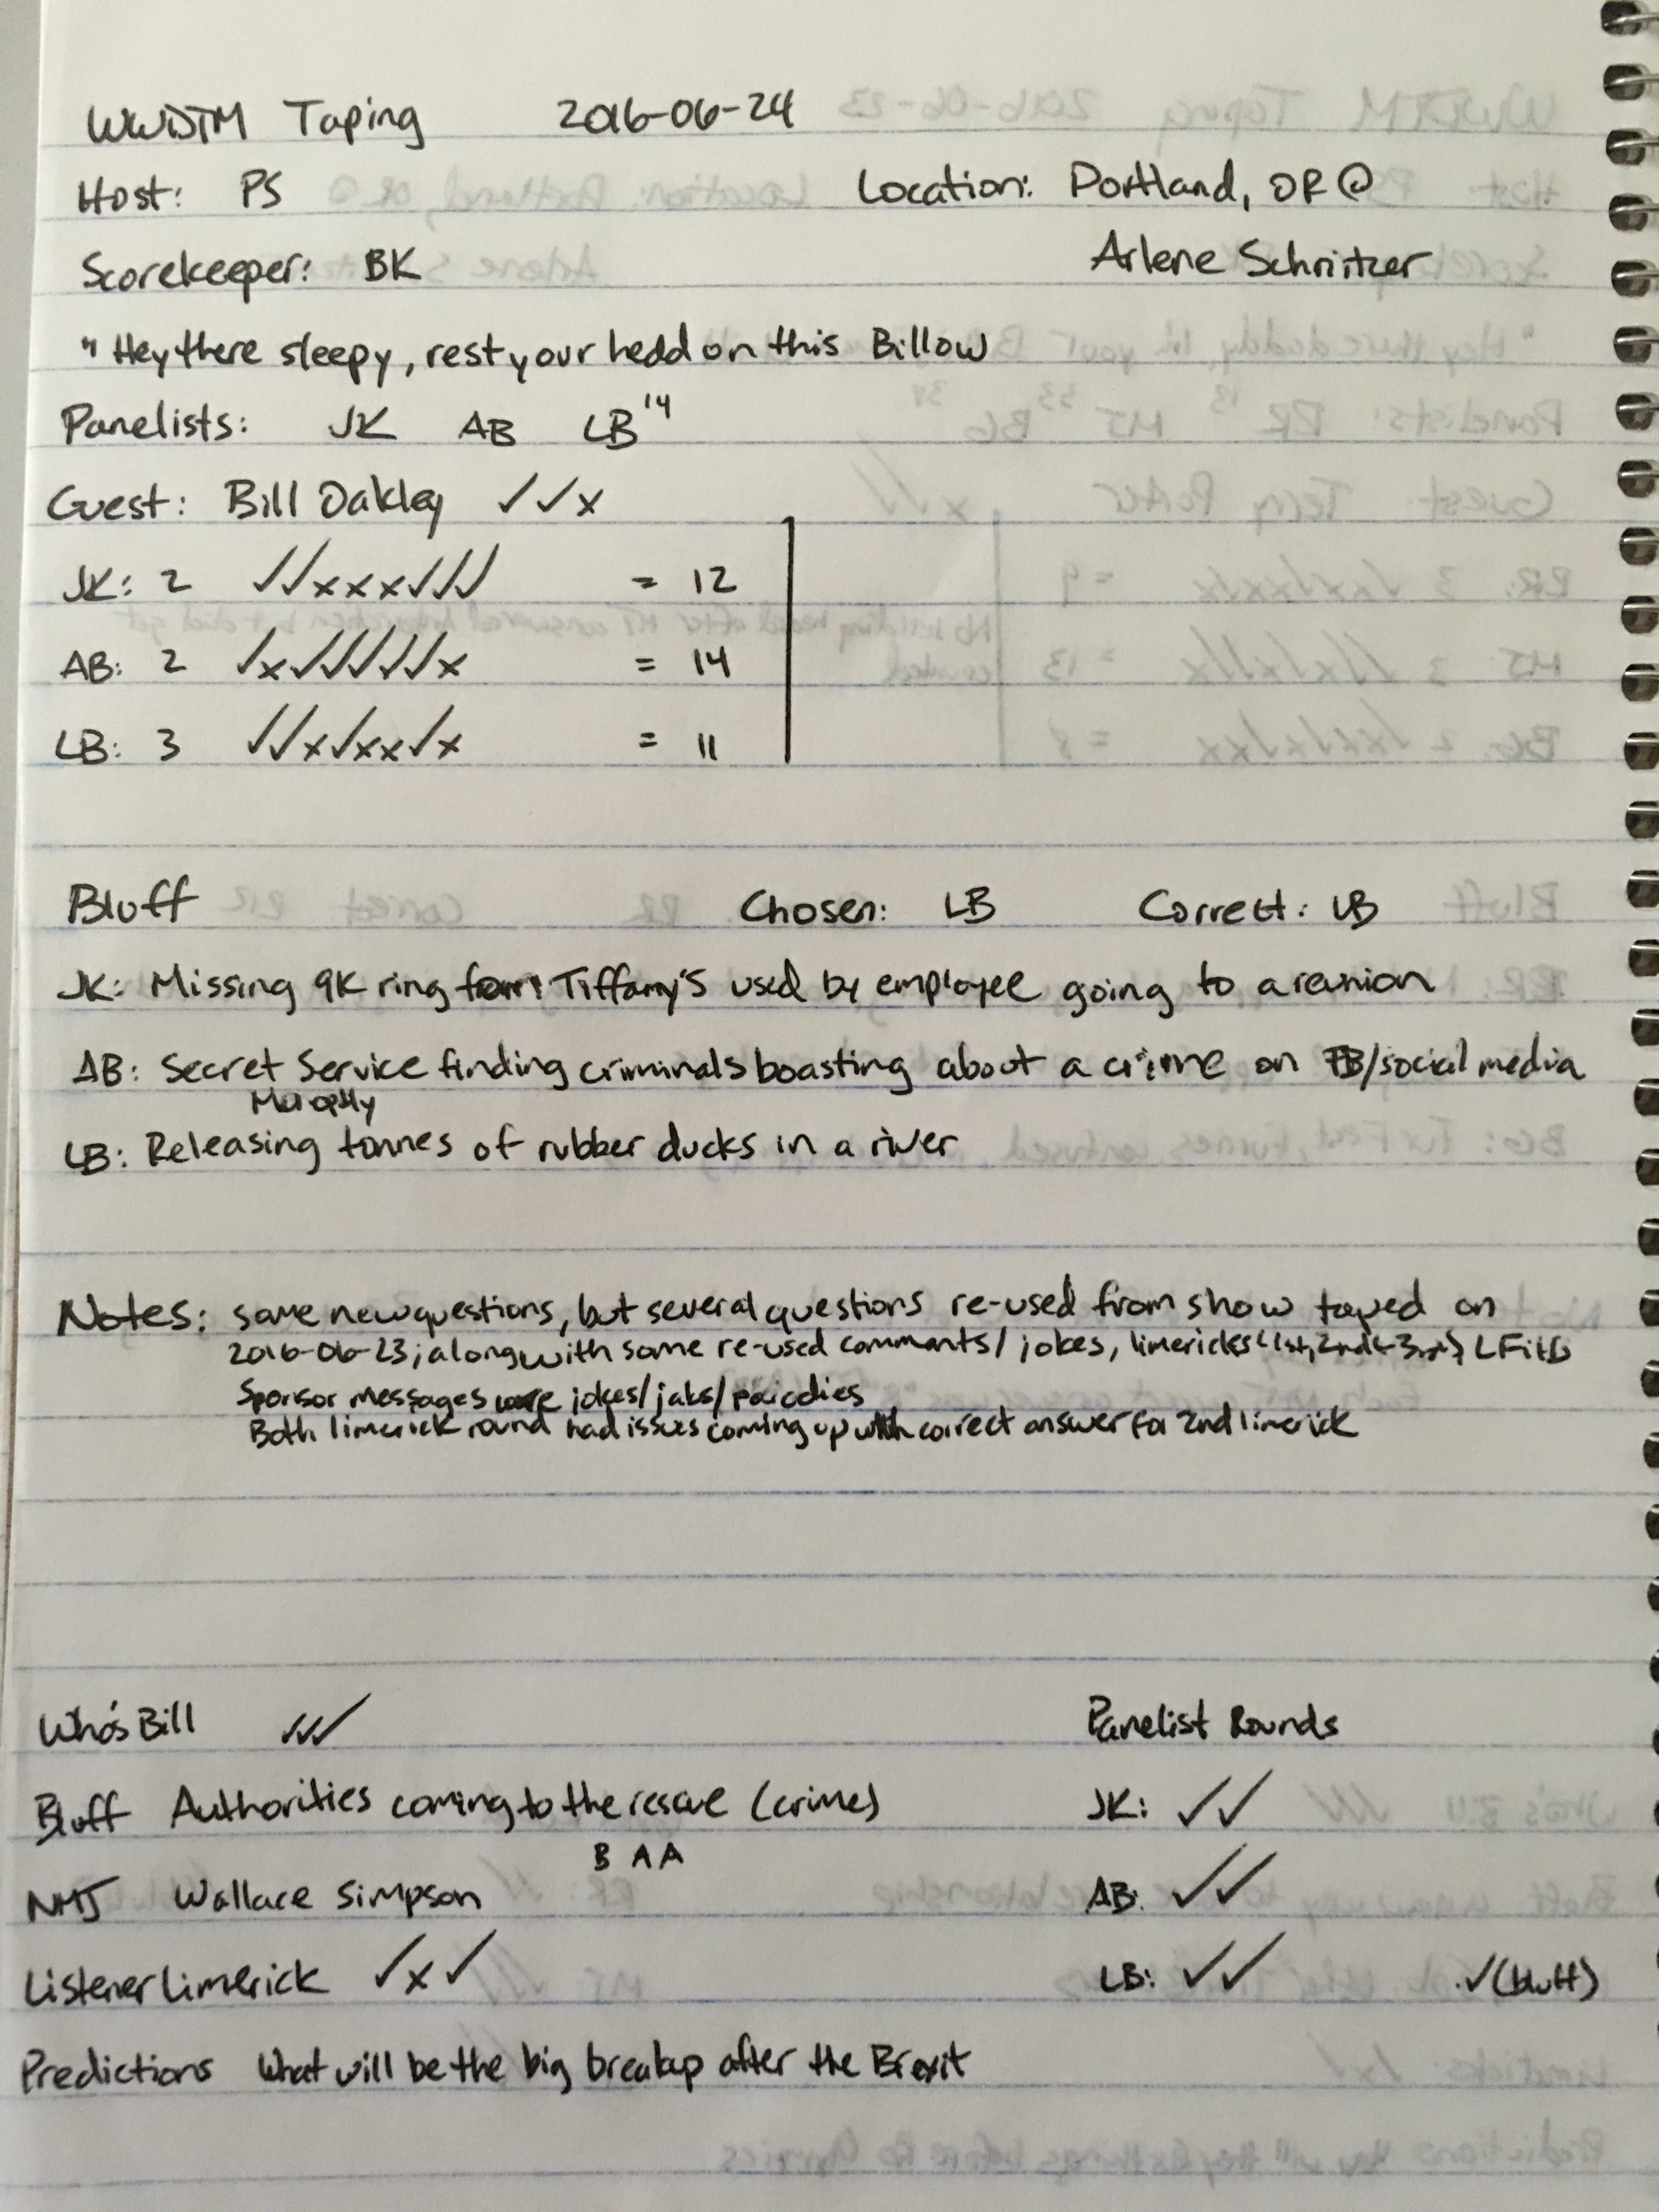 WWDTM Taping 2016-06-24
Host: PS Location: Portland, OR @
Scorekeeper: BK Arlene Schnitzer
"Hey there sleepy, rest your hedd on this Billow
Panelists: JK AB LB 14
Guest: Bill Oakley ✓✓x
JK: 2 ✓✓xxx✓✓✓ = 12
AB: 2 ✓x✓✓✓✓✓x = 14
LB: 3 ✓✓x✓xx✓x = 11
Bluff Chosen: LB Correct: LB
JK: Missing 9K ring from Tiffany's used by employee going to a reunion
AB: Secret Service finding criminals boasting about a crime on FB/social media
LB: Releasing tonnes of rubber ducks in a river
Notes: some new questions, but several questions re-used from show taped on
2016-06-23; along with some re-used comments/jokes, limericks (1st, 2nd & 3rd), LFitB
Sponsor messages were jokes/jabs/parodies
Both limerick round had issues coming up with correct answer for 2nd limerick
Who's Bill ✓✓✓ Panelist Rounds
Bluff Authorities coming to the rescue (crime) JK: ✓✓
B A A
NMJ Wallace Simpson AB: ✓✓
Listener Limerick ✓x✓ LB: ✓✓ ✓(bluff)
Predictions What will be the big breakup after the Brexit